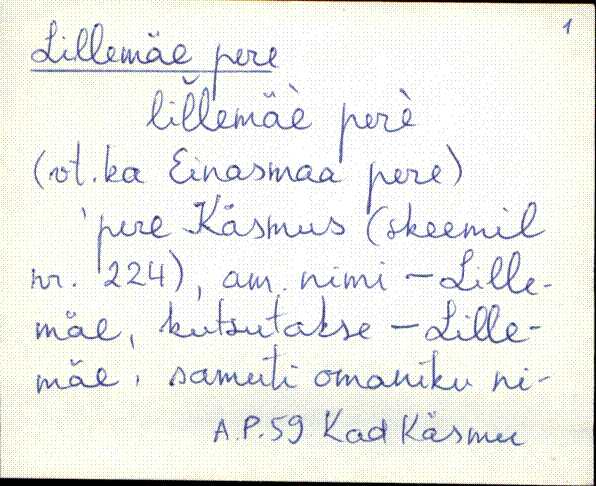 1
Lillemäe pere
lil̆lemäè perè
(vt. ka Einasmaa pere)
'pere Käsmus (skeemil
nr. 224), am. nimi – Lille-
mäe, kutsutakse – Lille-
mäe, samuti omaniku ni-
A.P. 59 Kad Käsmu